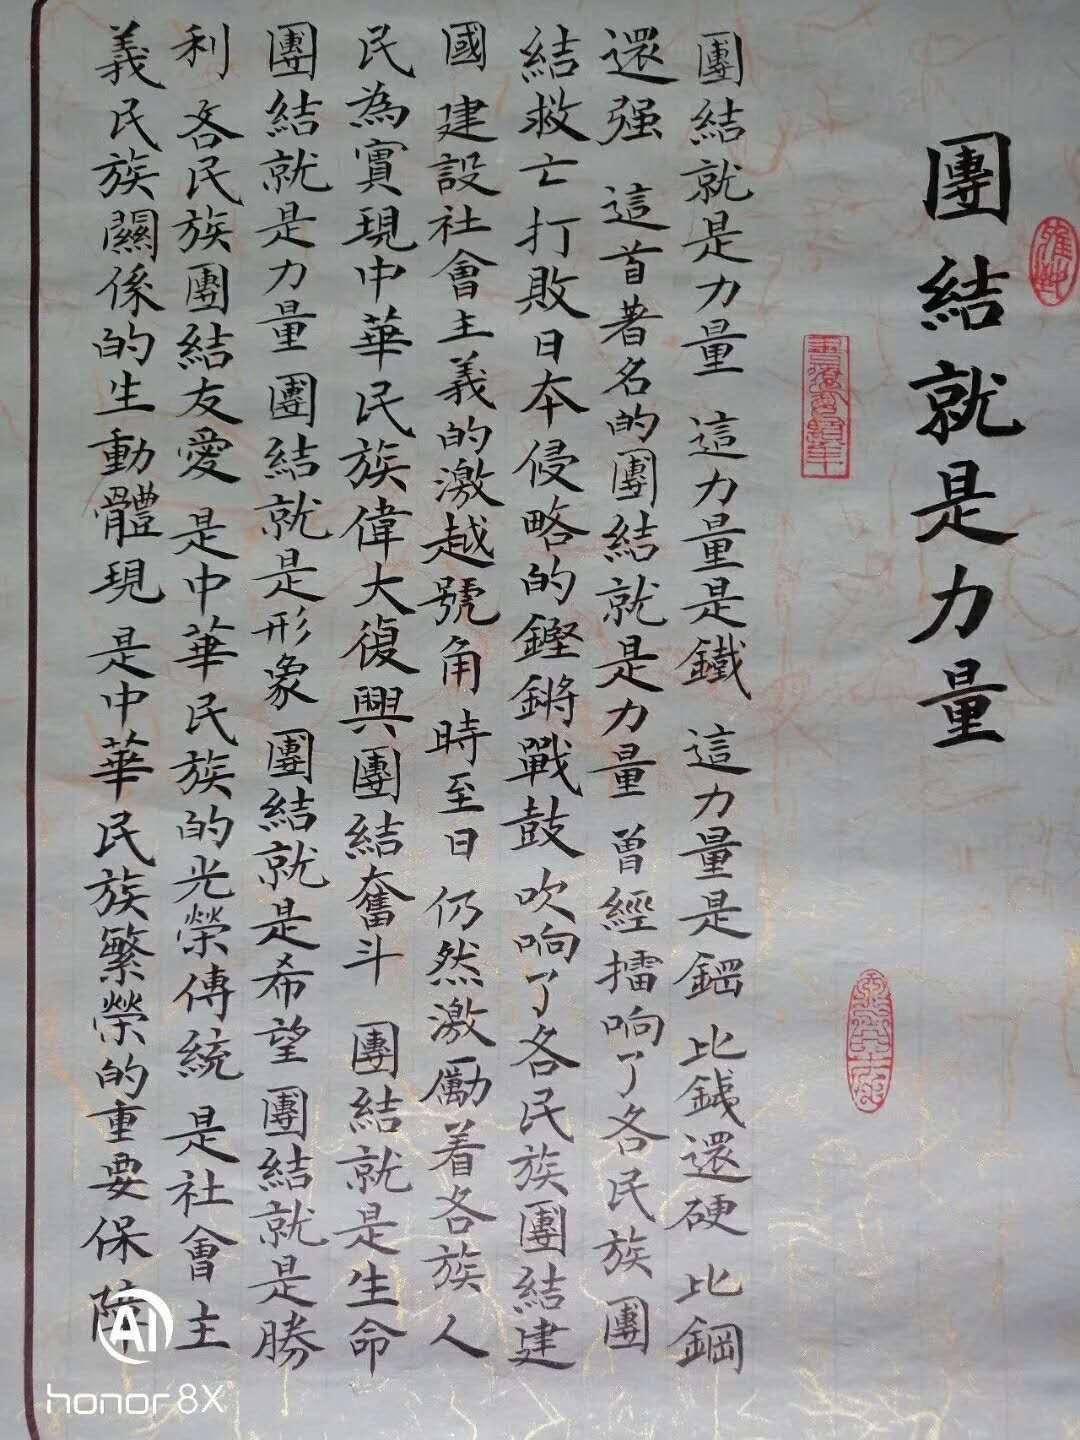 團結就是力量
團結就是力量 這力量是鐵 這力量是鋼 比鐵還硬 比鋼
還强 這首著名的團結就是力量 曾經擂响了各民族 團
結救亡打敗日本侵略的鏗鏘戰鼓 吹响了各民族團結建
國 建設社會主義的激越號角 時至日 仍然激勵着各族人
民為實現中華民族偉大復興團結奮斗 團結就是生命
團結就是力量 團結就是形象 團結就是希望 團結就是勝
利 各民族團結友愛 是中華民族的光榮傳統 是社會主
義民族關係的生動體現 是中華民族繁榮的重要保障
AI
honor 8X